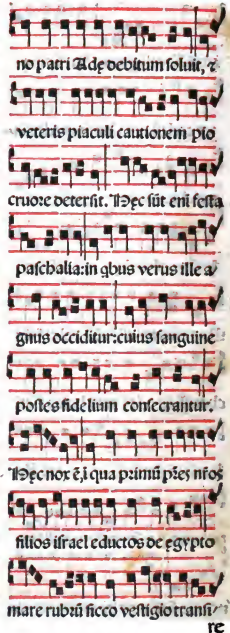 no patri Adę debitum soluit, ⁊
veteris piaculi cautionem pio
cruore detersit. Hęc sũt enĩ festa
paschalia: in qbus verus ille a/
gnus occiditur: cuius sanguine
postes fidelium consecrantur.
Hęc nox ẽ, ĩ qua primũ pr̃es nr̃os
filios israel eductos de ęgypto
mare rubrũ sicco vestigio transi/
re